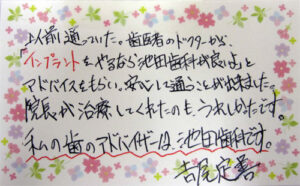 以前通っていた。歯医者のドクターから、
「インプラントをやるなら池田歯科が良いよ」と
アドバイスをもらい。安心して通うことが出来ました。
院長が治療してくれたのも、うれしかったです。
私の歯のアドバイザーは、池田歯科です。
吉尾定嘉